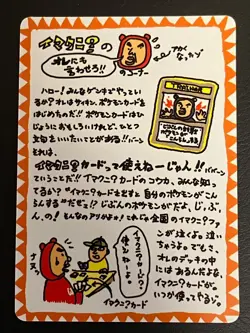 イマクニ?の
オレにも
言わせろ!!
のコーナー
アカく
なったゾ
TRAINER
ハロー!みんなゲンキでやってい
るか?オレはサイキン、ポケモンカードを
はじめたのだ!!ポケモンカードはひ
じょうにおもしろいけれど、ひとつ
文句をいいたいことがある!!
それは、
イマクニ?カードって使えねーじゃん!!
ていうことだ!!イマクニ?カードのコウカ、みんな知っ
てるか?"イマクニ?カードを出すと自分のポケモンがこん
らんする"だぜ!?じぶんのポケモンがだよ、じ、ぶ、
ん、の!そんなのアリかよ!これじゃ全国のイマクニ?ファ
ンが泣くよ。泣い
ちゃうよ。でもさ、
オレのデッキの中
にはあるんだよな、
イマクニ?カードが。
いつか使ってやるゾ。
イマクニ?カード?
使えねーよ。
イマクニ?カード